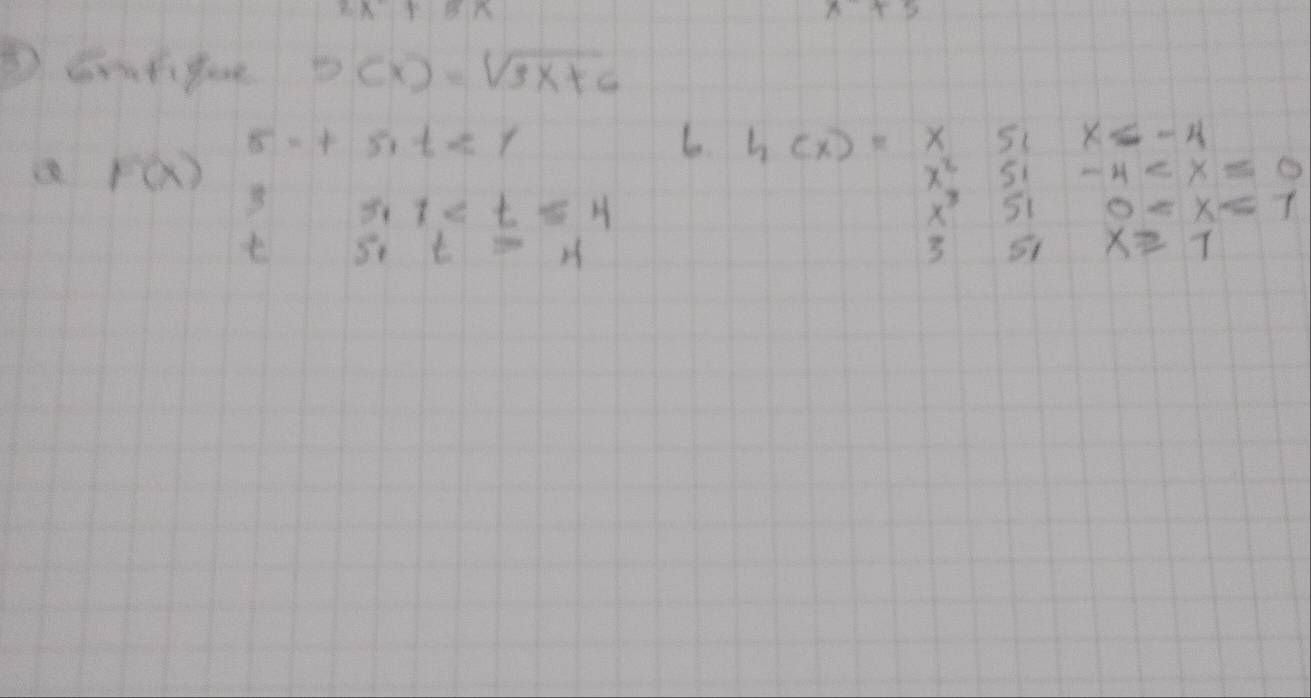 2x + 5x x + 3
3) Grafique D(x) = √3x+6
a r(x) 5 - t si t < 1
3 si 1 < t ≤ 4
t si t = 4
b h(x) = x si x ≤ -4
x² si -4 < x ≤ 0
x³ si 0 < x ≤ 1
3 si x ≥ 1